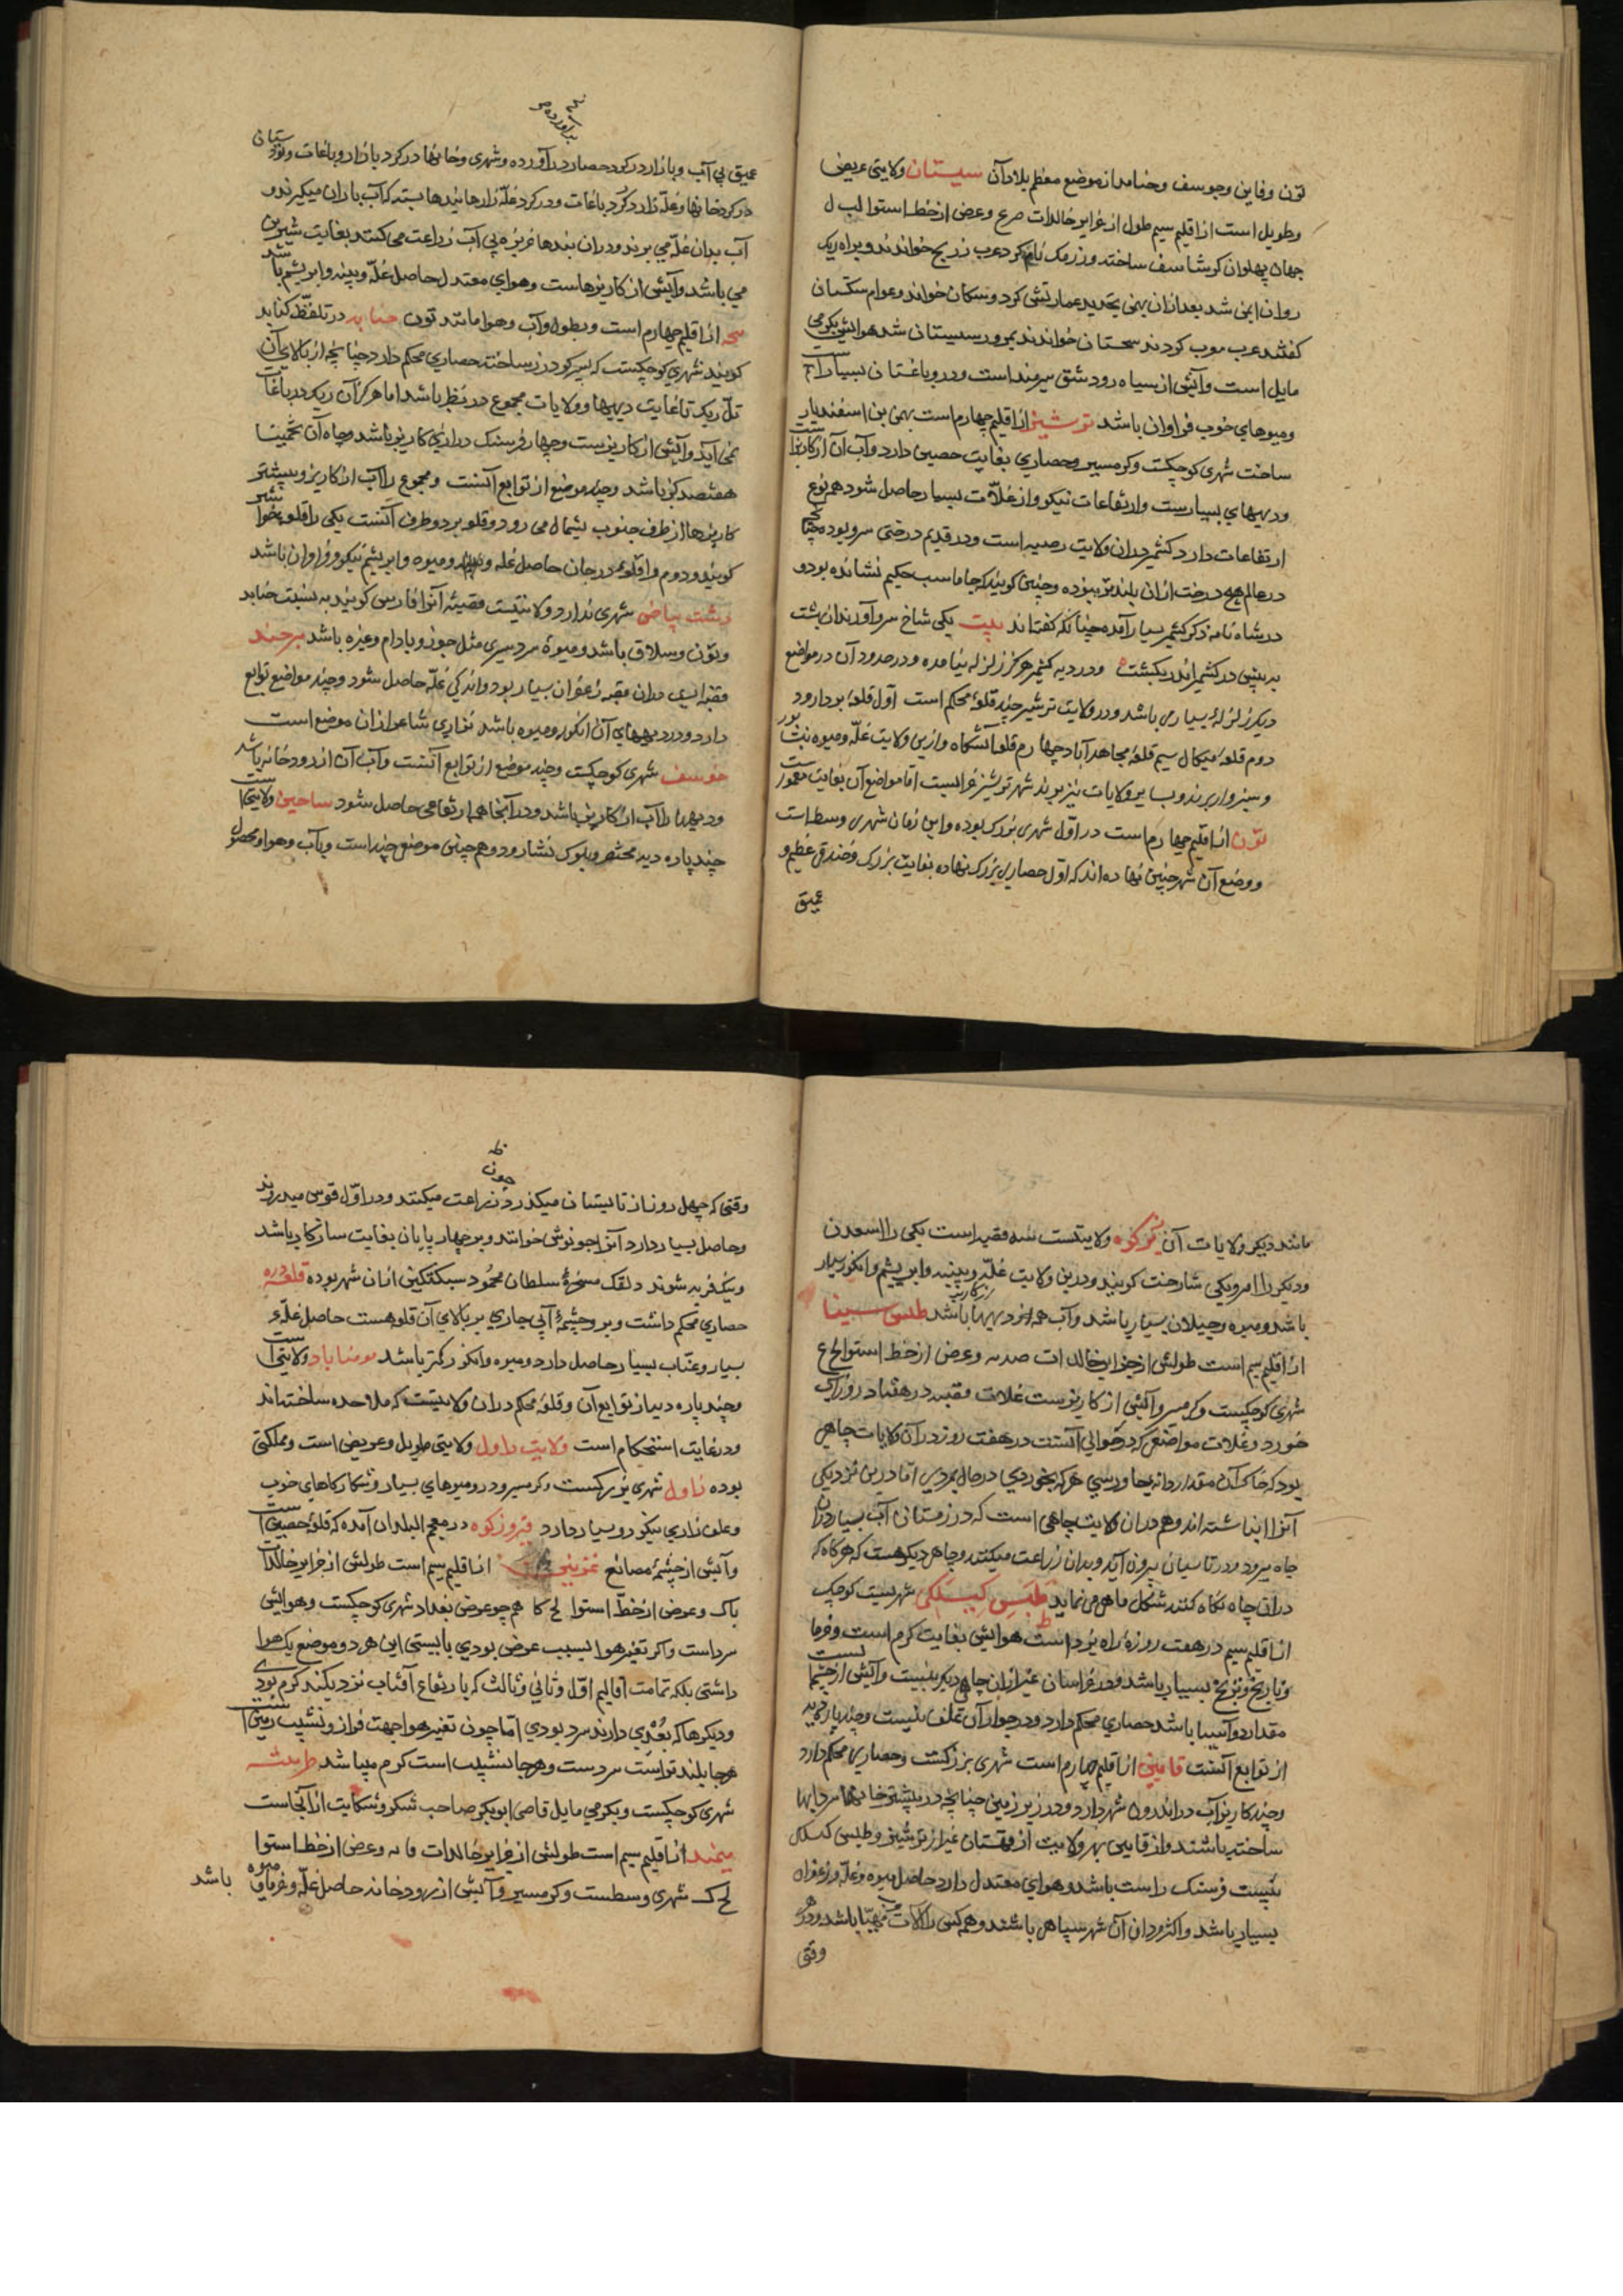 تون وقاین وجوسف وجنابد از موضع معظم بلاد آن سیستان ولایتی عریض
وطویل است از اقلیم سیم طول از جزایر خالدات وعرض از خط استوا لب ل
جهان پهلوان کرشاسف ساخته وزرنک نام کرد عرب زرنج خواندند وبر راه ریک
روان بعد ازان بهمن تجدید عمارتش کرد وسکان خواند وعوام سکستان
کفتند عرب معرب کردند سجستان خواندند بمرور سیستان شد هوایش بکرمی
مایل است وآبش از سیاه رود شق هیرمند است ودرو باغستان بسیار است
ومیوهای خوب فراوان باشد ترشیز از اقلیم چهارم است بهمن بن اسفندیار
ساخت شهری کوچکست وکرمسیر وحصاری بغایت حصین دارد وآب آن از کاریز است
ودیههای بسیارست وارتفاعات نیکو واز غلات بسیار حاصل شود همه نوع
ارتفاعات دارد کشمر دران ولایت است ودر قدیم درختی سرو بوده چنانکه
در عالم هیچ درخت ازان بلندتر نبوده وچنین کویند که جاماسب حکیم نشانده بود و
در شاه نامه ذکر کشمر بسیار آمده چنانکه کفته اند بیت یکی شاخ سرو آورد از بهشت
به پیش در کشمر اندر بکشت ودر دیه کشمر هرکز زلزله نیامده ودر حدود آن در مواضع
دیکر زلزله بسیار می باشد ودر ولایت ترشیز چند قلعه محکم است اول قلعه بردارود
دوم قلعه میکال سیم قلعه مجاهدآباد چهارم قلعه آتشکاه وازین ولایت غله ومیوه بنیشابور
وسبزوار برند وبسایر ولایات نیز برند شهر ترشیز خرابست اما مواضع آن بغایت معمور است
تون از اقلیم چهارم است در اول شهری بزرک بوده واین زمان شهری وسط است
ووضع آن شهر چنین نهاده اند که اول حصاری بزرک نهاده بغایت بزرک وخندقی عظیم و
عمیق
عمیق بی آب وبازار در کرد حصار درآورده وشهری وخانها در کرد بازار وباغات وتوتستان
در کرد خانها وغله زار در کرد باغات ودر کرد غله زارها بندها بسته که آب باران میکیرند و
آب بدان غله می برند ودران بندها خربزه بی آب زراعت می کنند بغایت شیرین
می باشد وآبش از کاریزهاست وهوای معتدل حاصل غله وپنبه وابریشم باشد
از اقلیم چهارم است وبطول وآب وهوا مانند تون جنابد در تلفظ کنابد
کویند شهری کوچکست که پسر کودرز ساخته حصاری محکم دارد چنانچه از بالای آن
تل ریک تا غایت دیهها وولایات مجموع در نظر باشد اما هرکز آن ریک در باغات
نمی آید وآبش از کاریزست وچهار فرسنک درازی کاریز باشد وچاه آن تخمینا
هفتصد کز باشد وچند موضع از توابع آنست ومجموع را آب از کاریز وبیشتر
کاریزها از طرف جنوب بشمال می رود وقلعه بر دو طرف آنست یکی را قلعه خواشیر
کویند ودوم را قلعه درجان حاصل غله ومیوه وابریشم نیکو وفراوان باشد
دشت بیاض شهری ندارد ولایتیست قصبه آنرا فارس کویند به نسبت جنابد
وتون ییلاق باشد ومیوه سردسیری مثل جوز وبادام وغیره باشد برجند
قصبه ایست دران قصبه زعفران بسیار بود واندکی غله حاصل شود وچند مواضع توابع
دارد ودر دیههای آن انکور ومیوه باشد نزاری شاعر ازان موضع است
خوسف شهری کوچکست وچند موضع از توابع آنست وآب آن از رودخانه باشد
ودیهها را آب از کاریز باشد ودر آنجا همه ارتفاعی حاصل شود ساخین ولایتیست
چند پاره دیه مختصر وبلوک نشارود وهم چنین موضع چند است وبآب وهوا ومحصول
ماند دیکر ولایات آن زیرکوه ولایتست سه قصبه است یکی را اسعدن
ودیکر را امرو یکی شارخت کویند ودرین ولایت غله وپنبه وابریشم وانکور بسیار
باشد ومیوه وچیلان بسیار باشد وآب همه دیهها باشد طبس سینا
از اقلیم سیم است طولش از جزایر خالدات وعرض از خط استوا لح ع
شهری کوچکست وکرمسیر وآبش از کاریزست غلات قصبه در هفتاد روز آب
خورد وغلات مواضعی که در حوالی آنست در هفت روز در آن ولایات چاهی
بود که خاک آن مقدار دانه جاورسی هر که بخوردی در حال بمردی اما درین نزدیکی
آنرا انباشته اند وهم دران ولایت چاهی است که در زمستان آب بسیار دران
چاه میرود ودر تابستان بیرون آید وبدان زراعت میکنند وچاهی دیکر هست که هرکاه که
دران چاه نکاه کنند شکل ماهی می نماید طبس کیلکی شهریست کوچک
از اقلیم سیم در هفت روزه راه یزد است هوایش بغایت کرم است وخرما
ونارنج وترنج بسیار باشد ودر خراسان غیر ازان جای دیکر نیست وآبش از چشمه ایست
مقدار دو آسیا باشد حصاری محکم دارد ودر جوار آن علف نیست وچند پاره دیه
از توابع آنست قاین از اقلیم چهارم است شهری بزرکست وحصاری محکم دارد
وچند کاریز آب در اندرون شهر دارد ودر زیر زمین چنانچه در بیشتر خانها سردابها
ساخته باشند واز قاین بهر ولایت از قهستان غیر از ترشیز وطبس کیلکی
بیست فرسنک راست باشد وهوای معتدل دارد حاصل میوه وغله وزعفران
بسیار باشد واکثر مردان آن شهر سپاهی باشند وهمه کس را آلات مهیا باشد ودر هر
وقتی
وقتی که چهل روز از تابستان میکذرد زراعت میکنند ودر اول قوس میدروند
وحاصل بسیار دارد آنرا جو نوش خوانند وبر چهارپایان بغایت سازکار باشد
ونیک فربه شوند دلقک مسخره سلطان محمود سبکتکین ازان شهر بوده قلعه دره
حصاری محکم داشت وبر وچشمه آبی جاری بر بالای آن قلعه هست حاصل غله
بسیار وعناب بسیار حاصل دارد ومیوه وانکور کمتر باشد مومناباد ولایتی است
وچند پاره دیه از توابع آن وقلعه محکم دران ولایتست که ملاحده ساخته اند
ودر غایت استحکام است ولایت داول ولایتی طویل وعریض است ومملکتی
بوده زاول شهری بزرکست وکرمسیر ودرو میوهای بسیار وشکارکاهای خوب
وعلف زاری نیکو وبسیار دارد فیروزکوه در معجم البلدان آمده که قلعه حصین است
وآبش از چشمه مصانع غزنین از اقلیم سیم است طولش از جزایر خالدات
باک وعرض از خط استوا لح کا هم چو عرض بغداد شهری کوچکست وهوایش
سرد است واکر تغیر هوا بسبب عرض بودی بایستی این هر دو موضع یک هوا
داشتی بلکه تمامت اقالیم اول وثانی وثالث که بارتفاع آفتاب نزدیکند کرم بودی
ودیکرها که بُعدی دارند سرد بودی اما چون تغیر هوا جهت فراز ونشیب زمین است
هرجا بلندتر است سردست وهرجا نشیب است کرم میباشد
شهری کوچکست وبکرمی مایل قاضی ابوبکر صاحب شکر وشکایت از آنجاست
میمند از اقلیم سیم است طولش از جزایر خالدات وعرض از خط استوا
لح ک شهری وسطست وکرمسیر وآبش از رودخانه حاصل غله وخرما ومیوه باشد